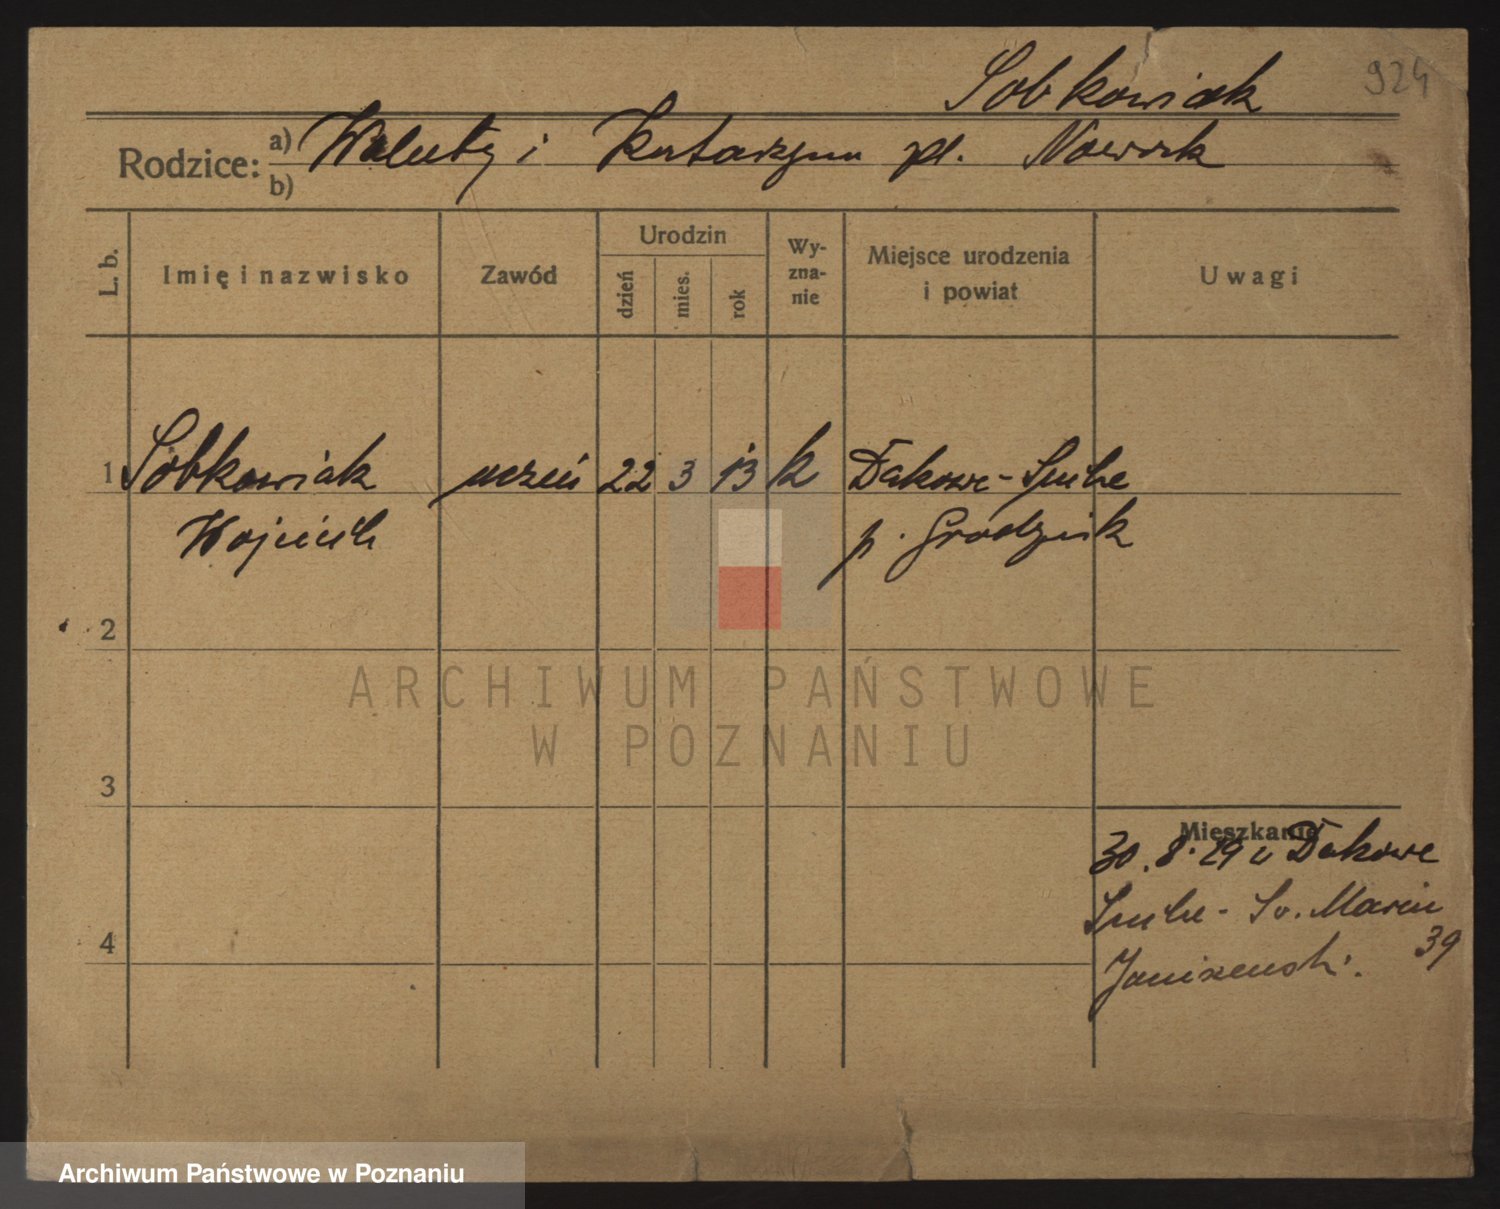 Sobkowiak 924
Rodzice: a) Walenty i Katarzyna pl. Nowak
b)
L. b. Imię i nazwisko Zawód Urodzin dzień mies. rok Wy-zna-nie Miejsce urodzenia i powiat Uwagi
1 Sobkowiak uczeń 22 3 13 k Dakowe-Suche
Wojciech p. Grodzisk
2
ARCHIWUM PAŃSTWOWE
W POZNANIU
3
Mieszkanie
30.8.29 z Dakowe
Suche - Św. Marcin
4 39
Janiszewski.
Archiwum Państwowe w Poznaniu